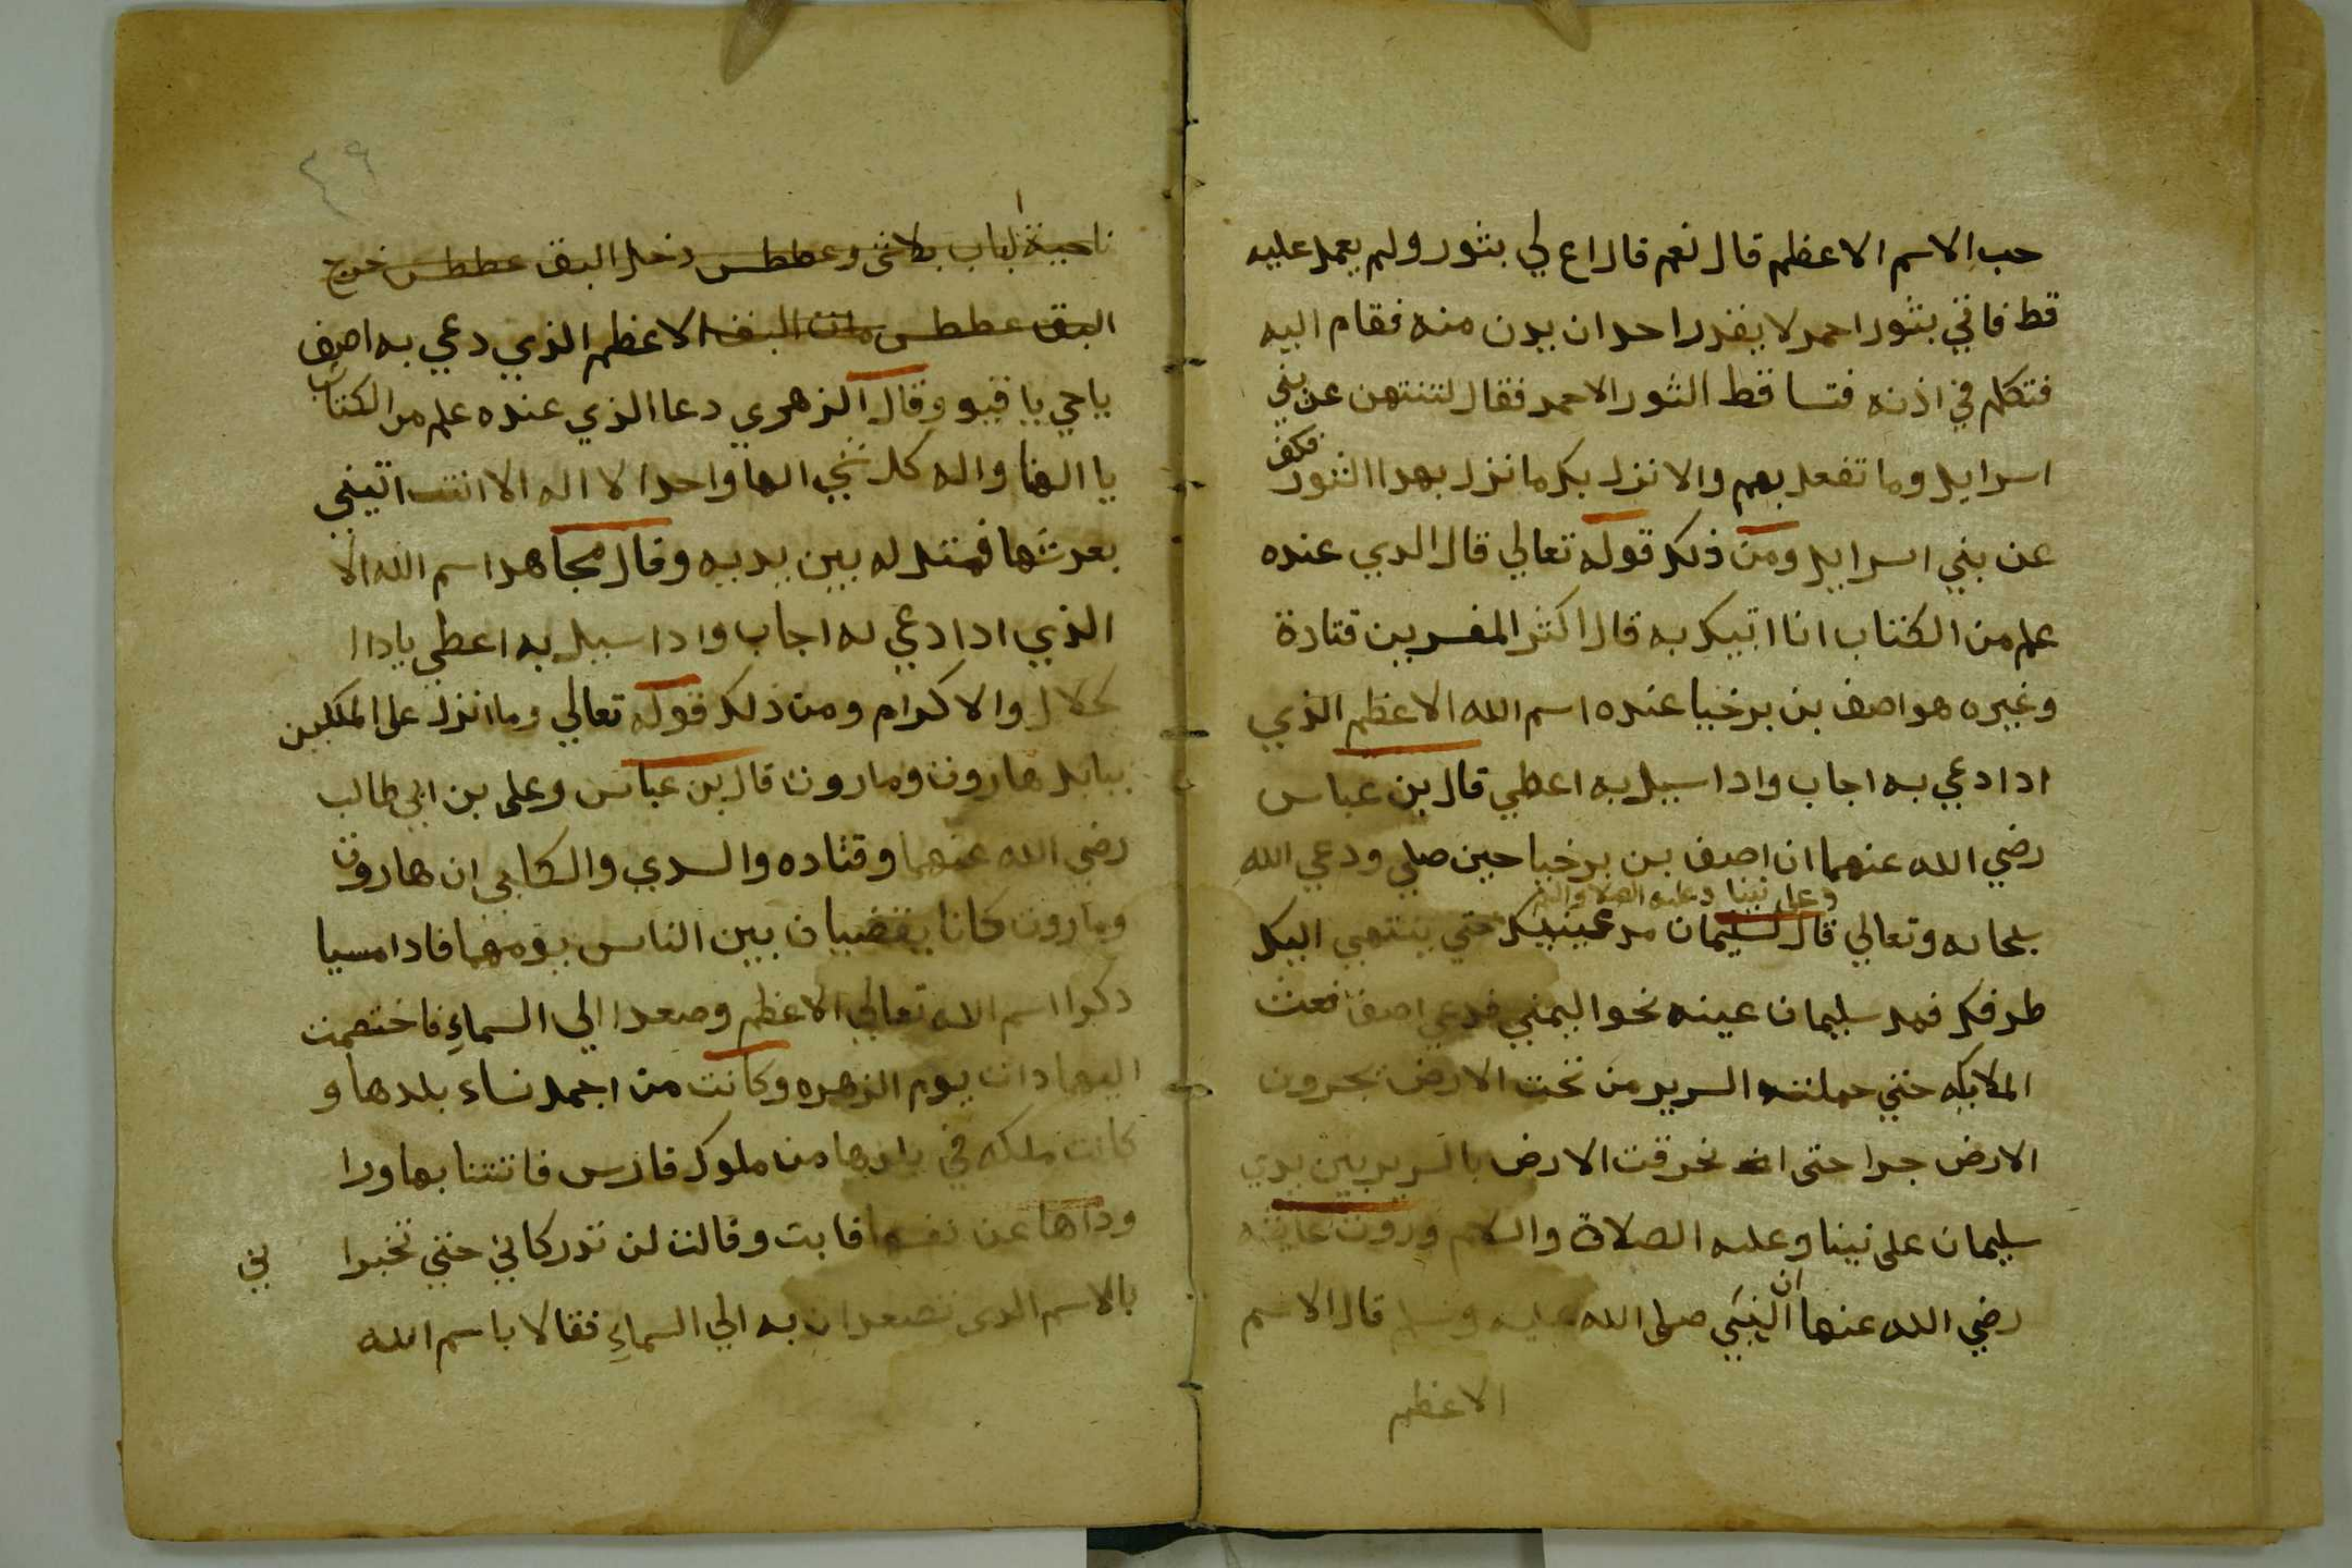 حب الاسم الاعظم قال نعم قال اع لي بثور ولم يعمل عليه
قط فاتي بثور احمر لا يقدر احد ان يدن منه فقام اليه
فتكلم في اذنه فتساقط الثور الاحمر فقال لتنتهن عن بني
اسرايل وما تفعل بهم والا نزل بك ما نزل بهدا الثور فكف
عن بني اسرايل ومن ذلك قوله تعالي قال الدي عنده
علم من الكتاب انا اتيك به قال اكثر المفسرين قتادة
وغيره هو اصف بن برخيا عنده اسم الله الاعظم الذي
ادا دعي به اجاب وادا سيل به اعطي قال بن عباس
رضي الله عنهما ان اصف بن برخيا حين صلي ودعي الله
وعلى نبينا وعليه الصلا والسلام
سبحانه وتعالي قال لسليمان مد عينيك حتي ينتهي اليك
طرفك فمد سليمان عينه نحو اليمني فدعي اصف فبعث
الملايكه حتي حملته السرير من تحت الارض يجرون
الارض جرا حتى انخرقت الارض بالسرير بين يدي
سليمان على نبينا وعليه الصلاة والسلام وروت عايشه
رضي الله عنها ان النبي صلى الله عليه وسلم قال الاسم
الاعظم
٤٩
ناحية الباب وعطس دخل البق عطس خرج
البق عطس مات البق الاعظم الذي دعي به اصف
ياحي يا قيو وقال الزهري دعا الذي عنده علم من الكتاب
يا الهنا واله كل شي الها واحدا لا اله الا انت اتيني
بعرشها فمتل له بين يديه وقال مجاهد اسم الله الا
الذي ادا دعي به اجاب وادا سيل به اعطي يادا ا
لجلال والاكرام ومن ذلك قوله تعالي وما انزل على الملكين
ببابل هاروت وماروت قال بن عباس وعلى بن ابي طالب
رضي الله عنهما وقتاده والسدي والكلبي ان هاروت
وماروت كانا يقضيان بين الناس يومهما فادا امسيا
دكرا اسم الله تعالي الاعظم وصعدا الي السماء فاختصمت
اليهما دات يوم الزهره وكانت من اجمل نساء بلدها و
كانت ملكه في بلدها من ملوك فارس فافتتنا بها ورا
وداها عن نفسها فابت وقالت لن تدركاني حتي تخبرا
ني
بالاسم الدى تصعدان به الي السماء فقالا باسم الله